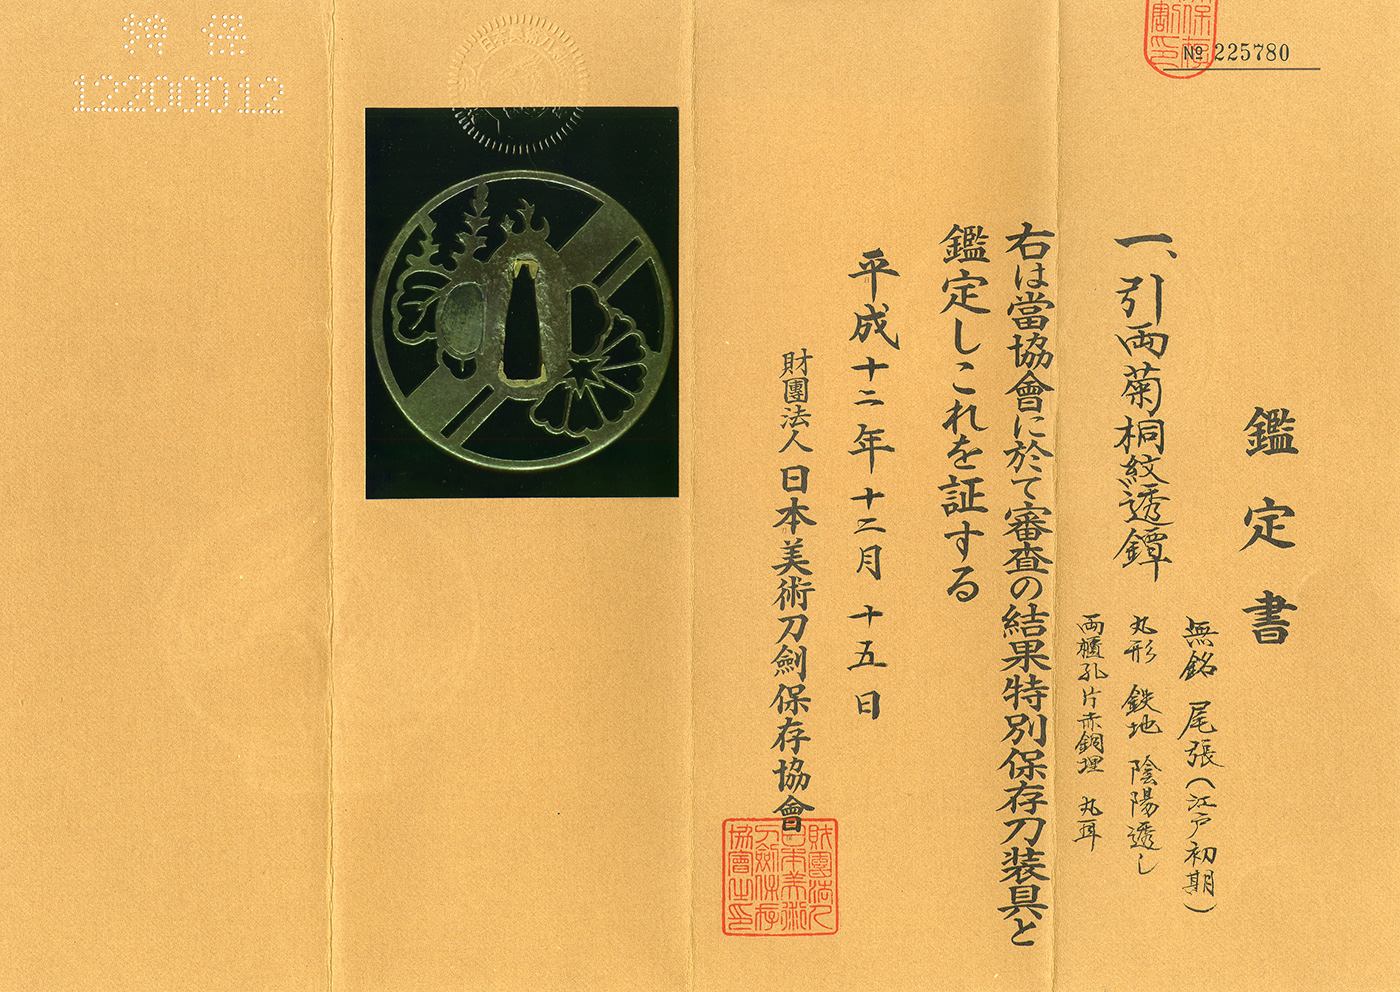 鑑定書
№ 225780
一、引両菊桐紋透鐔
無銘 尾張(江戸初期)
丸形 鉄地 陰陽透し
両櫃孔片赤銅埋 丸耳
右は當協會に於て審査の結果特別保存刀装具と
鑑定しこれを証する
平成十二年十二月十五日
財團法人日本美術刀劍保存協會
財團法人
日本美術
刀劍保存
協會之印
特保
12200012